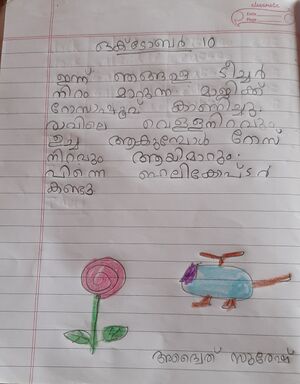 classmate
Date
Page
ഒക്ടോബർ 10
ഇന്ന് ഞങ്ങളുടെ ടീച്ചർ
നിറം മാറുന്ന മാജിക്ക്
റോസാപ്പൂവ് കാണിച്ചു.
രാവിലെ വെള്ളനിറവും
ഉച്ച ആകുമ്പോൾ റോസ്
നിറവും ആയിമാറും.
പിന്നെ ഹെലികോപ്ടർ
കണ്ടു
അദ്വൈത് സുരേഷ്